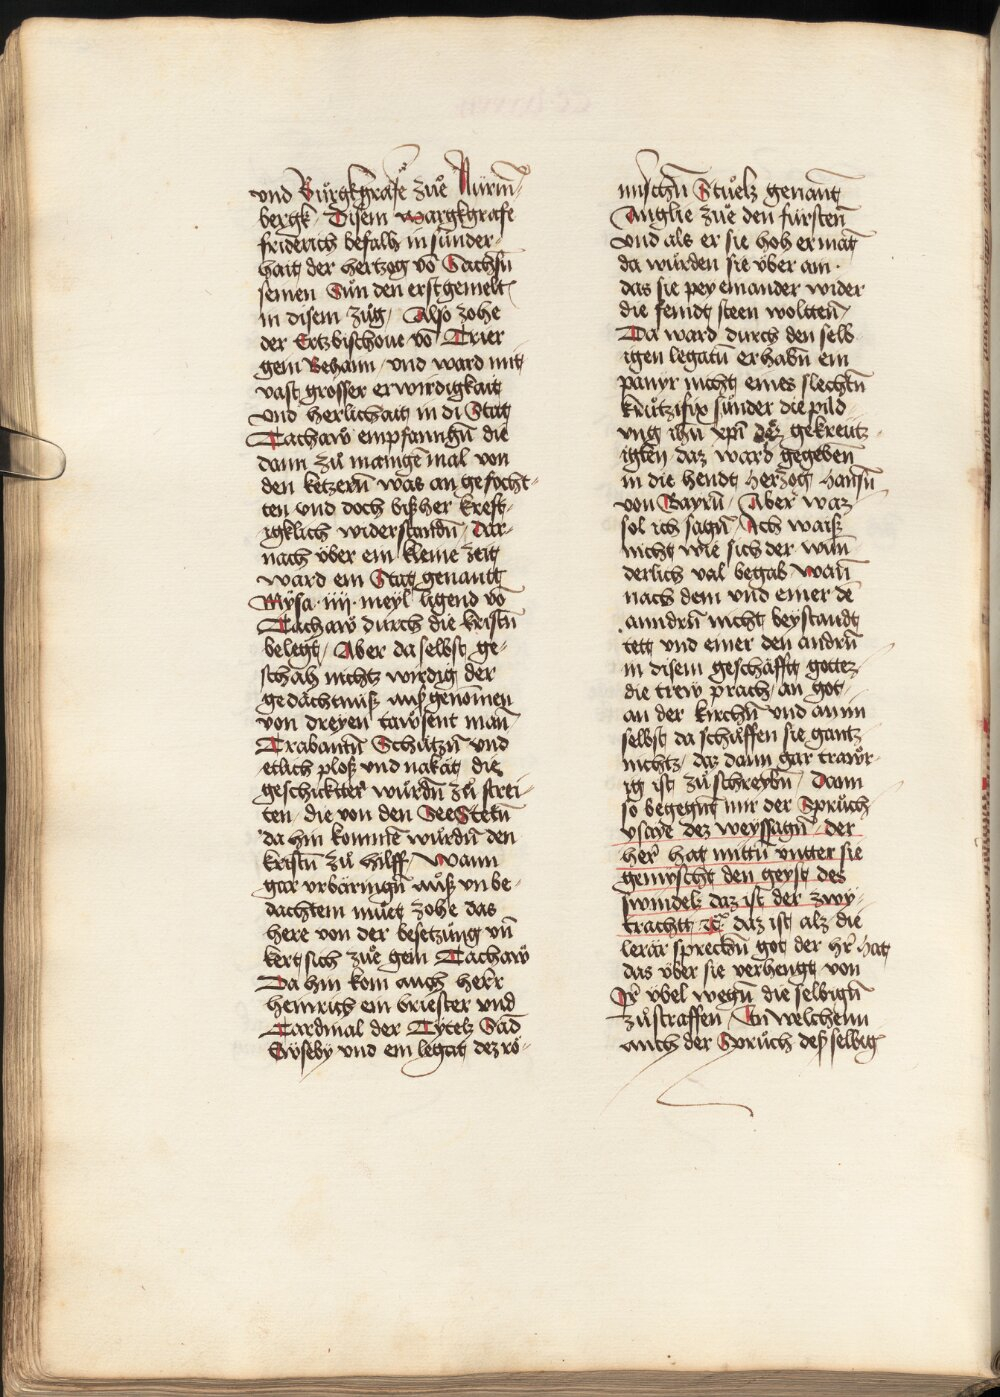 und Burgkgrafe zůe Nürm̄
bergk / Disem margkgrafe
friderich befalh in sunder-
hait der hertzog võ Sachsn̄
seinen Sůn den erstgemelt
in disem zůg / Also zohe
der Ertzbischoue võ Trier
gein Behann / und ward mit
vast grosser erwirdigkait
und herlichait in di Stat
Tachaẅ empfanngn̄ die
dann zů mangemmal von
den ketzern̄ was an gefocht-
ten und doch bißher kreft-
igklich widerstandn̄ / Dar-
nach über ein kleine zeit
ward ein Stat genantt
Mÿsa · iiij · meyl ligend võ
Tachaẅ durch die kristn̄
belegt / Aber daselbst ge-
schah nichtz wirdig der
gedächtnuß auß genom̄en
von dreyen tawsent man̄
Trabantn̄ Schützn̄ und
etlich ploß und nakat die
geschicktter wůrdn̄ zů strei-
ten / die von den SeeStetn̄
da hin kom̄en wůrdn̄ den
kristn̄ zů hilff / Wann
gar urbäringn̄ auß unbe-
dachtem můet zohe das
here von der besetzůng un̄
kert sich zůe gein Tachaẅ
Da hin kom auch herr
heinrich ein briester und
Cardinal der Tÿtelz San̄
Eÿseby und ein legat dez rö-
mischn̄ Stůelz genant
Anglie zůe den fürsten̄
und als er sie hoh ermat
da wůrden sie über ain ·
das sie pey einander wider
die feindt steen woltten̄
Da ward durch den selb
igen legatn̄ erhabn̄ ein
panÿr nicht eines slechtn̄
krůtzifix sůnder die pild
ung ihū xp̄i dez gekreutz-
igten daz ward gegeben̄
in die hendt herzog hansn̄
von Bayrn̄ / Aber waz
sol ich sagn̄ / Ich waiß
nicht wie sich der wůn̄
derlich val begab / wan̄
nach dem und einer dē
anndrn̄ nicht beÿstandt
tett und einer den andrn̄
in disem geschäfftt gottez
die trew prach / an got /
an der kirchn̄ und an im
selbst da schůffen sie gantz
nichtz / daz dann gar trawr-
ig ist zůschreybn̄ / Dann
so begegnt mir der Sprůch
ysaye dez weyssagn̄ / der
her hat mittn̄ untter sie
gemyscht den geyst des
swindelz daz ist der zwÿ-
trachtt ꝛc daz ist alz die
lerär sprechn̄ got der hr̄ hat
das über sie verhengt von
Ir übel wegn̄ die selbign̄
zůstraffen / In welchem
auch der Sprůch deß selbig